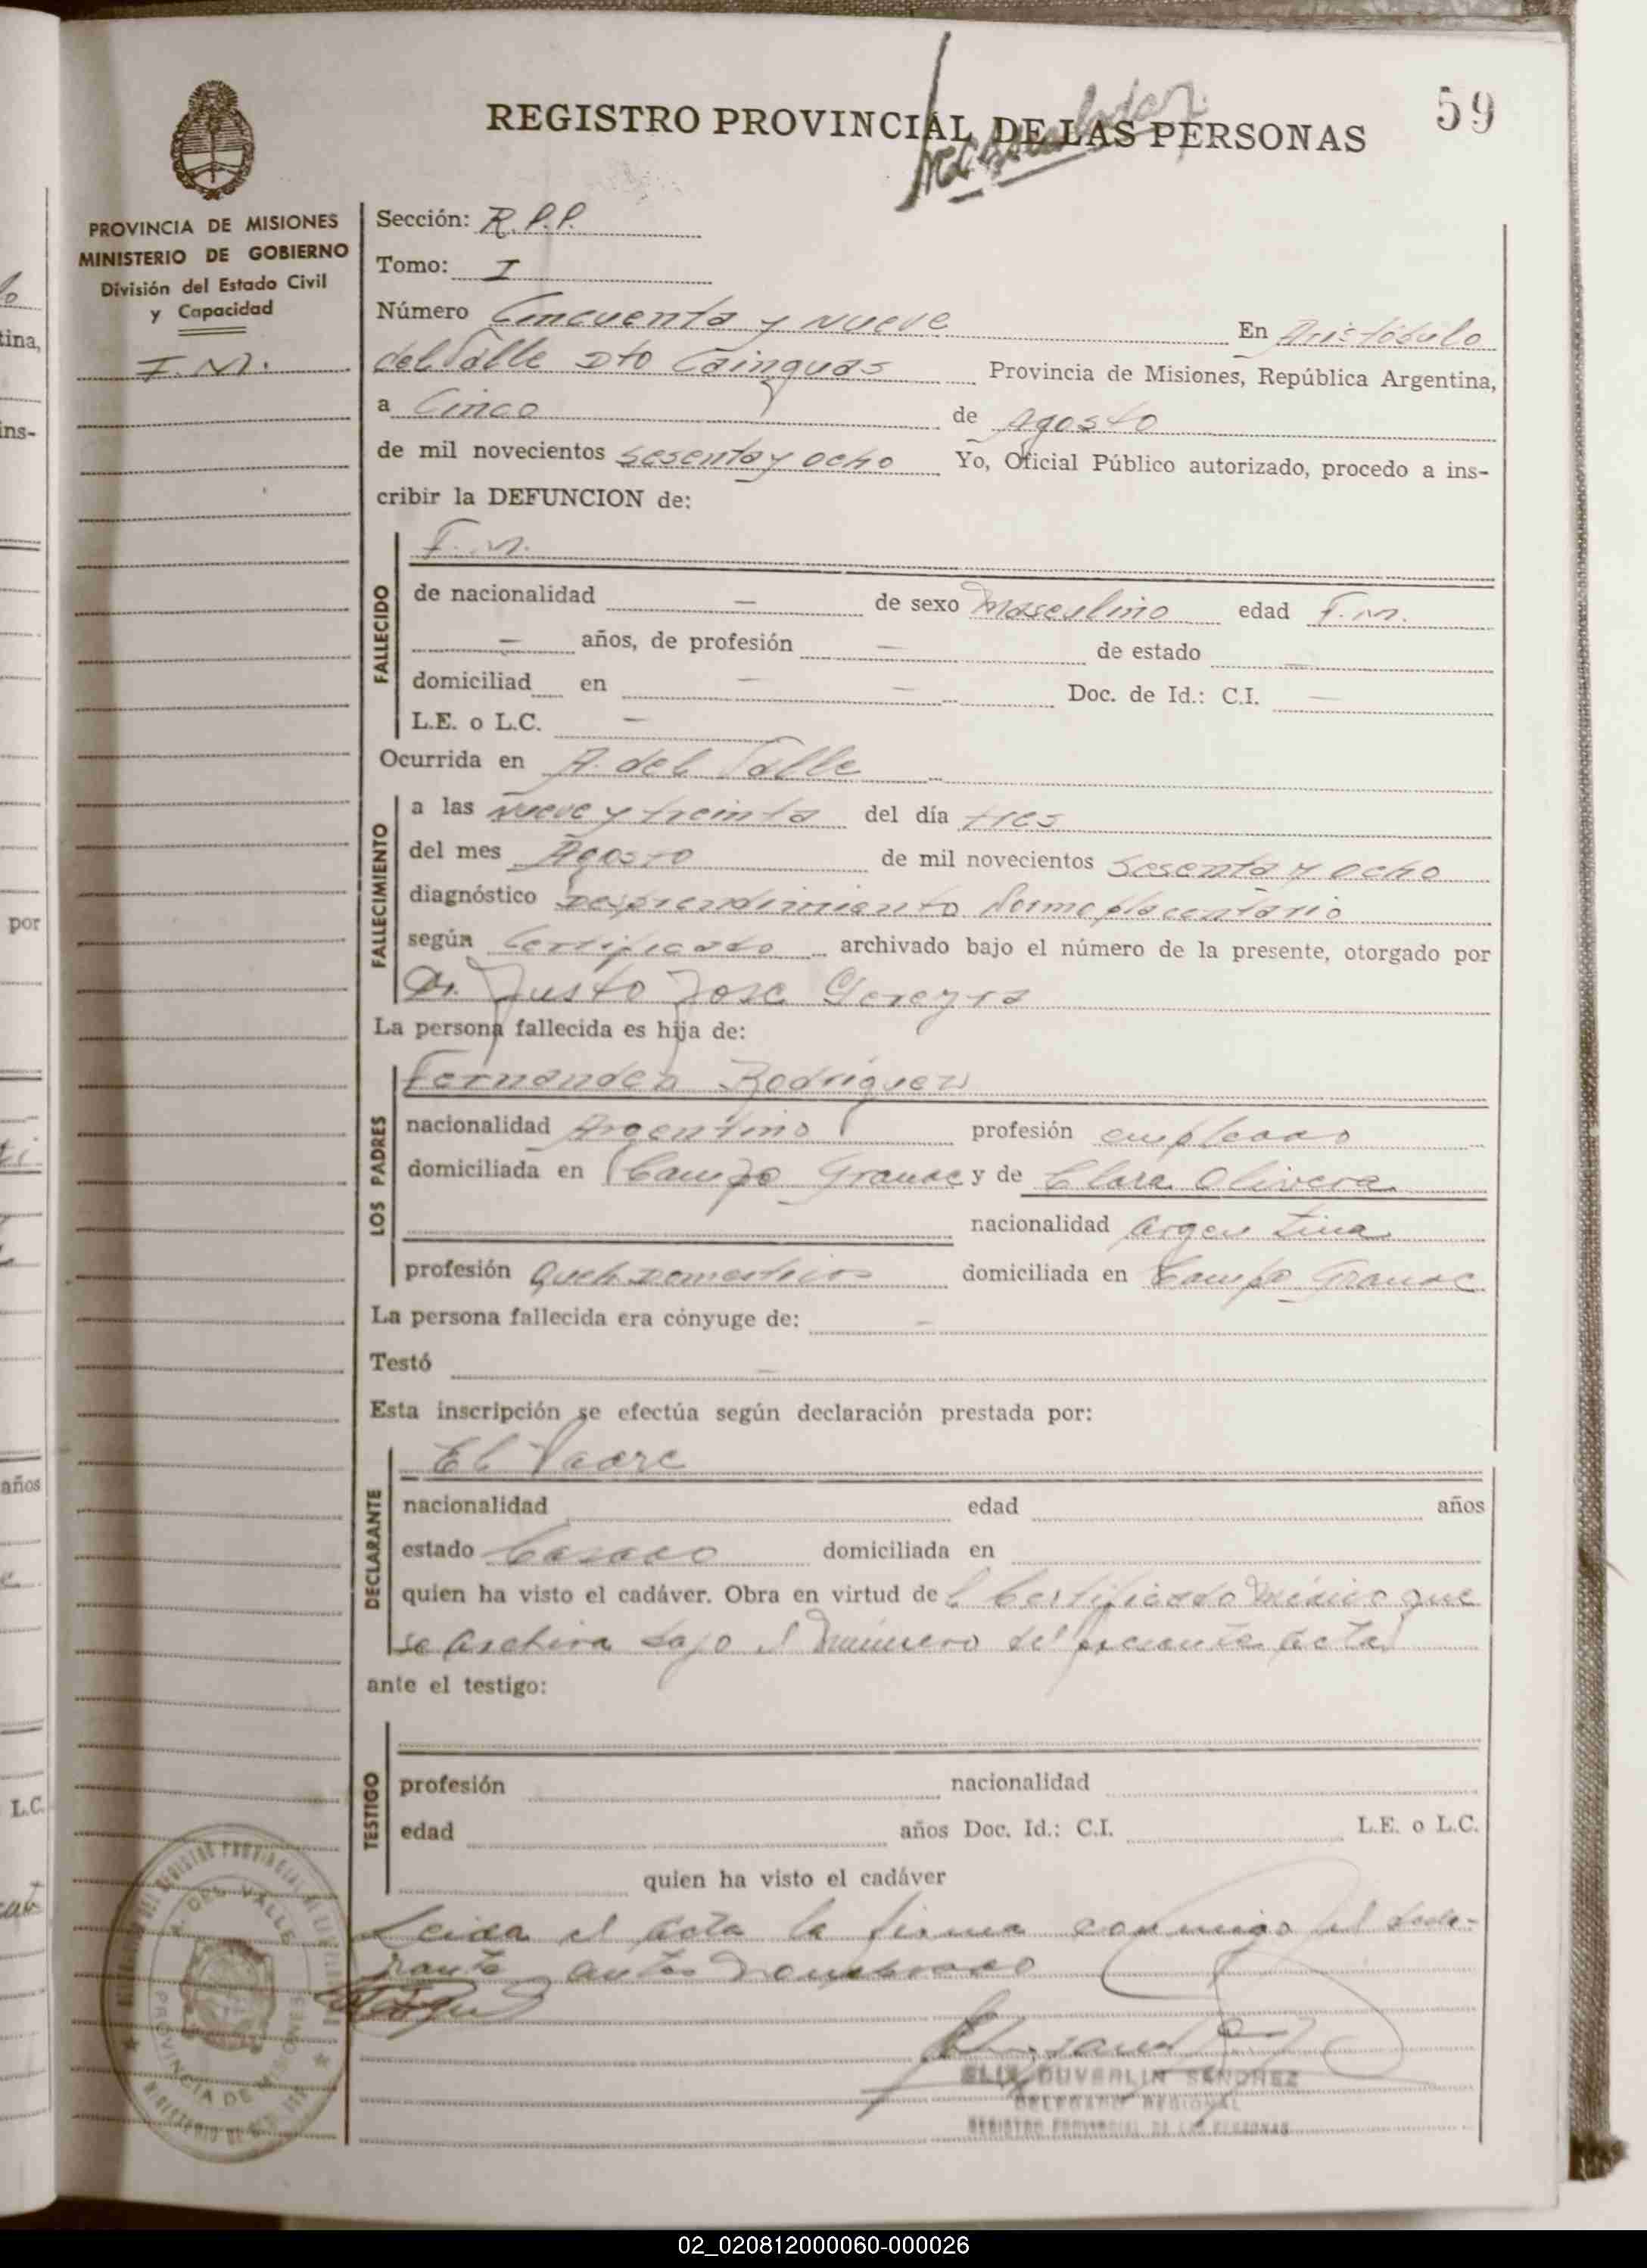 REGISTRO PROVINCIAL DE LAS PERSONAS
59
PROVINCIA DE MISIONES
MINISTERIO DE GOBIERNO
División del Estado Civil
y Capacidad
Sección: R.P.P.
Tomo: I
Número Cincuenta y nueve En Aristóbulo
del Valle Dto Cainguas Provincia de Misiones, República Argentina,
a Cinco de Agosto
de mil novecientos sesenta y ocho Yo, Oficial Público autorizado, procedo a ins-
cribir la DEFUNCION de:
FALLECIDO
F. M.
de nacionalidad — de sexo Masculino edad F. M.
— años, de profesión — de estado —
domiciliad en — — Doc. de Id.: C.I. —
L.E. o L.C. —
Ocurrida en A. del Valle
FALLECIMIENTO
a las nueve y treinta del día tres
del mes Agosto de mil novecientos sesenta y ocho
diagnóstico Desprendimiento placentario
según Certificado archivado bajo el número de la presente, otorgado por
Dr. Justo Jose Gereyra
La persona fallecida es hija de:
LOS PADRES
Fernandez Rodriguez
nacionalidad Argentino profesión empleado
domiciliada en Campo Grande y de Clara Olivera
nacionalidad argentina
profesión Queh. Domesticos domiciliada en Campo Grande
La persona fallecida era cónyuge de: —
Testó —
Esta inscripción se efectúa según declaración prestada por:
DECLARANTE
El Padre
nacionalidad edad años
estado Casado domiciliada en
quien ha visto el cadáver. Obra en virtud de l Certificado Médico que
se archiva bajo el número del presente acta
ante el testigo:
TESTIGO
profesión nacionalidad
edad años Doc. Id.: C.I. L.E. o L.C.
quien ha visto el cadáver
Leida el acta la firma conmigo el decla-
rante antes nombrado
DUVERLIN SANCHEZ
DELEGADO REGIONAL
REGISTRO PROVINCIAL DE LAS PERSONAS
A. DEL VALLE
PROVINCIA DE MISIONES
02_020812000060-000026